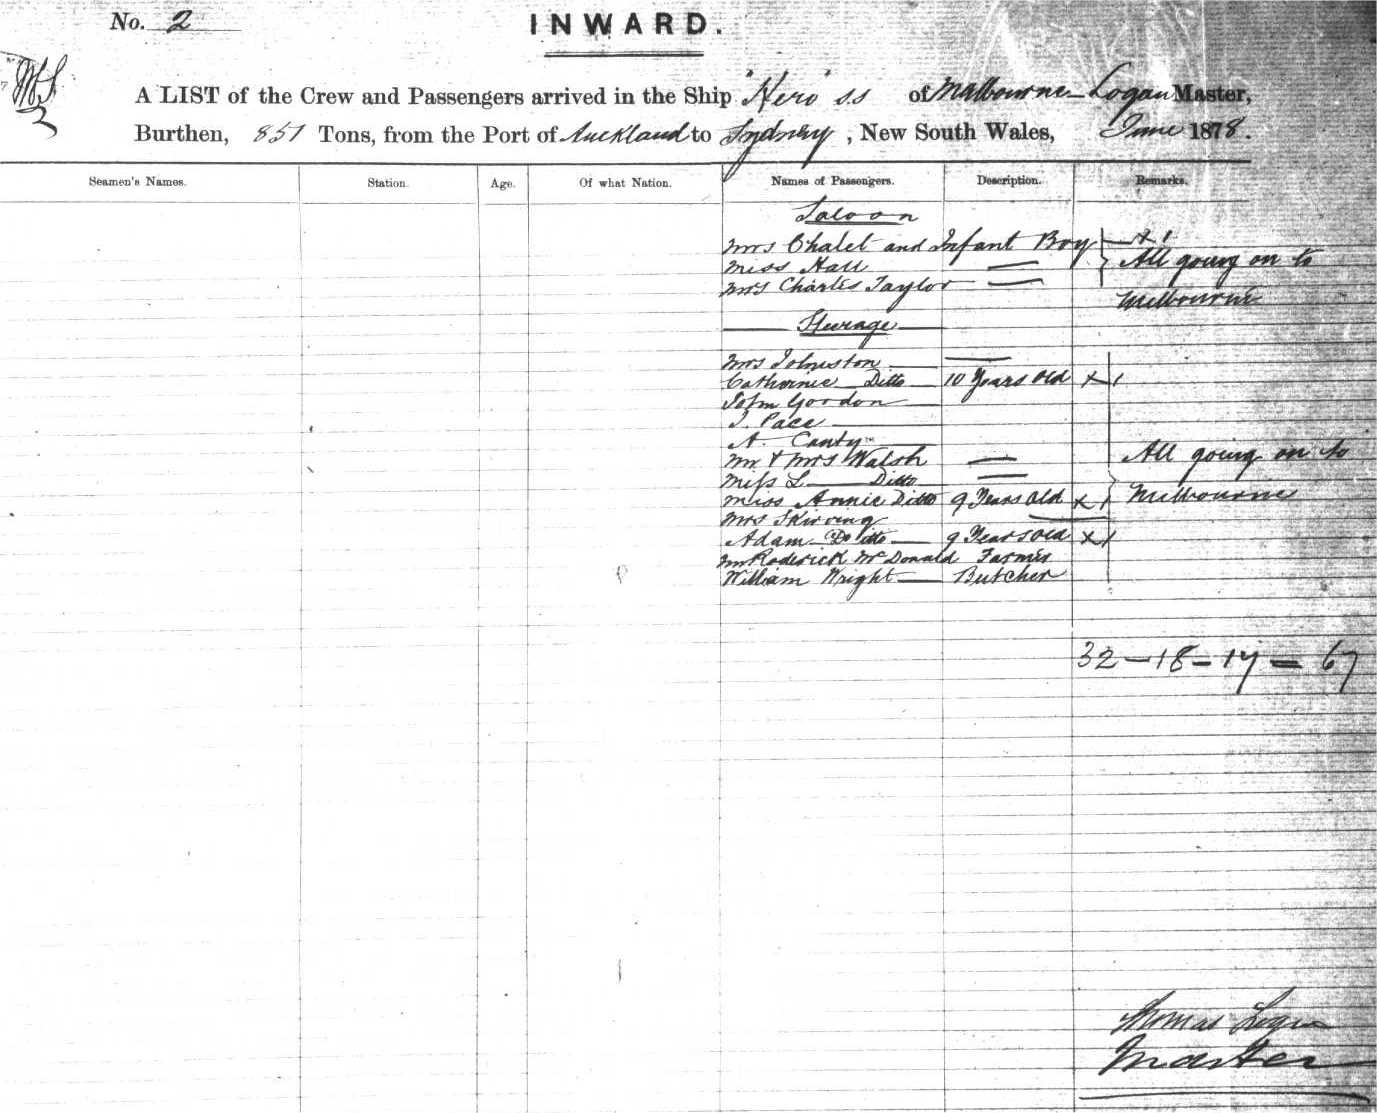 No. 2
INWARD.
A LIST of the Crew and Passengers arrived in the Ship "Hero" s.s of Melbourne Logan Master,
Burthen, 851 Tons, from the Port of Auckland to Sydney, New South Wales, June 1878.
Seamen's Names. Station. Age. Of what Nation. Names of Passengers. Description. Remarks.
Saloon
Mrs Chalet and Infant Boy x 1
Miss Hall — All going on to
Mrs Charles Taylor — Melbourne
Steerage
Mrs Johnston —
Catherine Ditto 10 Years Old x 1
John Gordon
J. Pace
A. Canty
Mr & Mrs Walsh — All going on to
Miss L. Ditto —
Miss Annie Ditto 9 Years Old x 1 Melbourne
Mrs Skirving
Adam Ditto 9 Years Old x 1
Mr Roderick McDonald Farmer
William Wright Butcher
32 - 18 - 17 = 67
Thomas Logan
Master